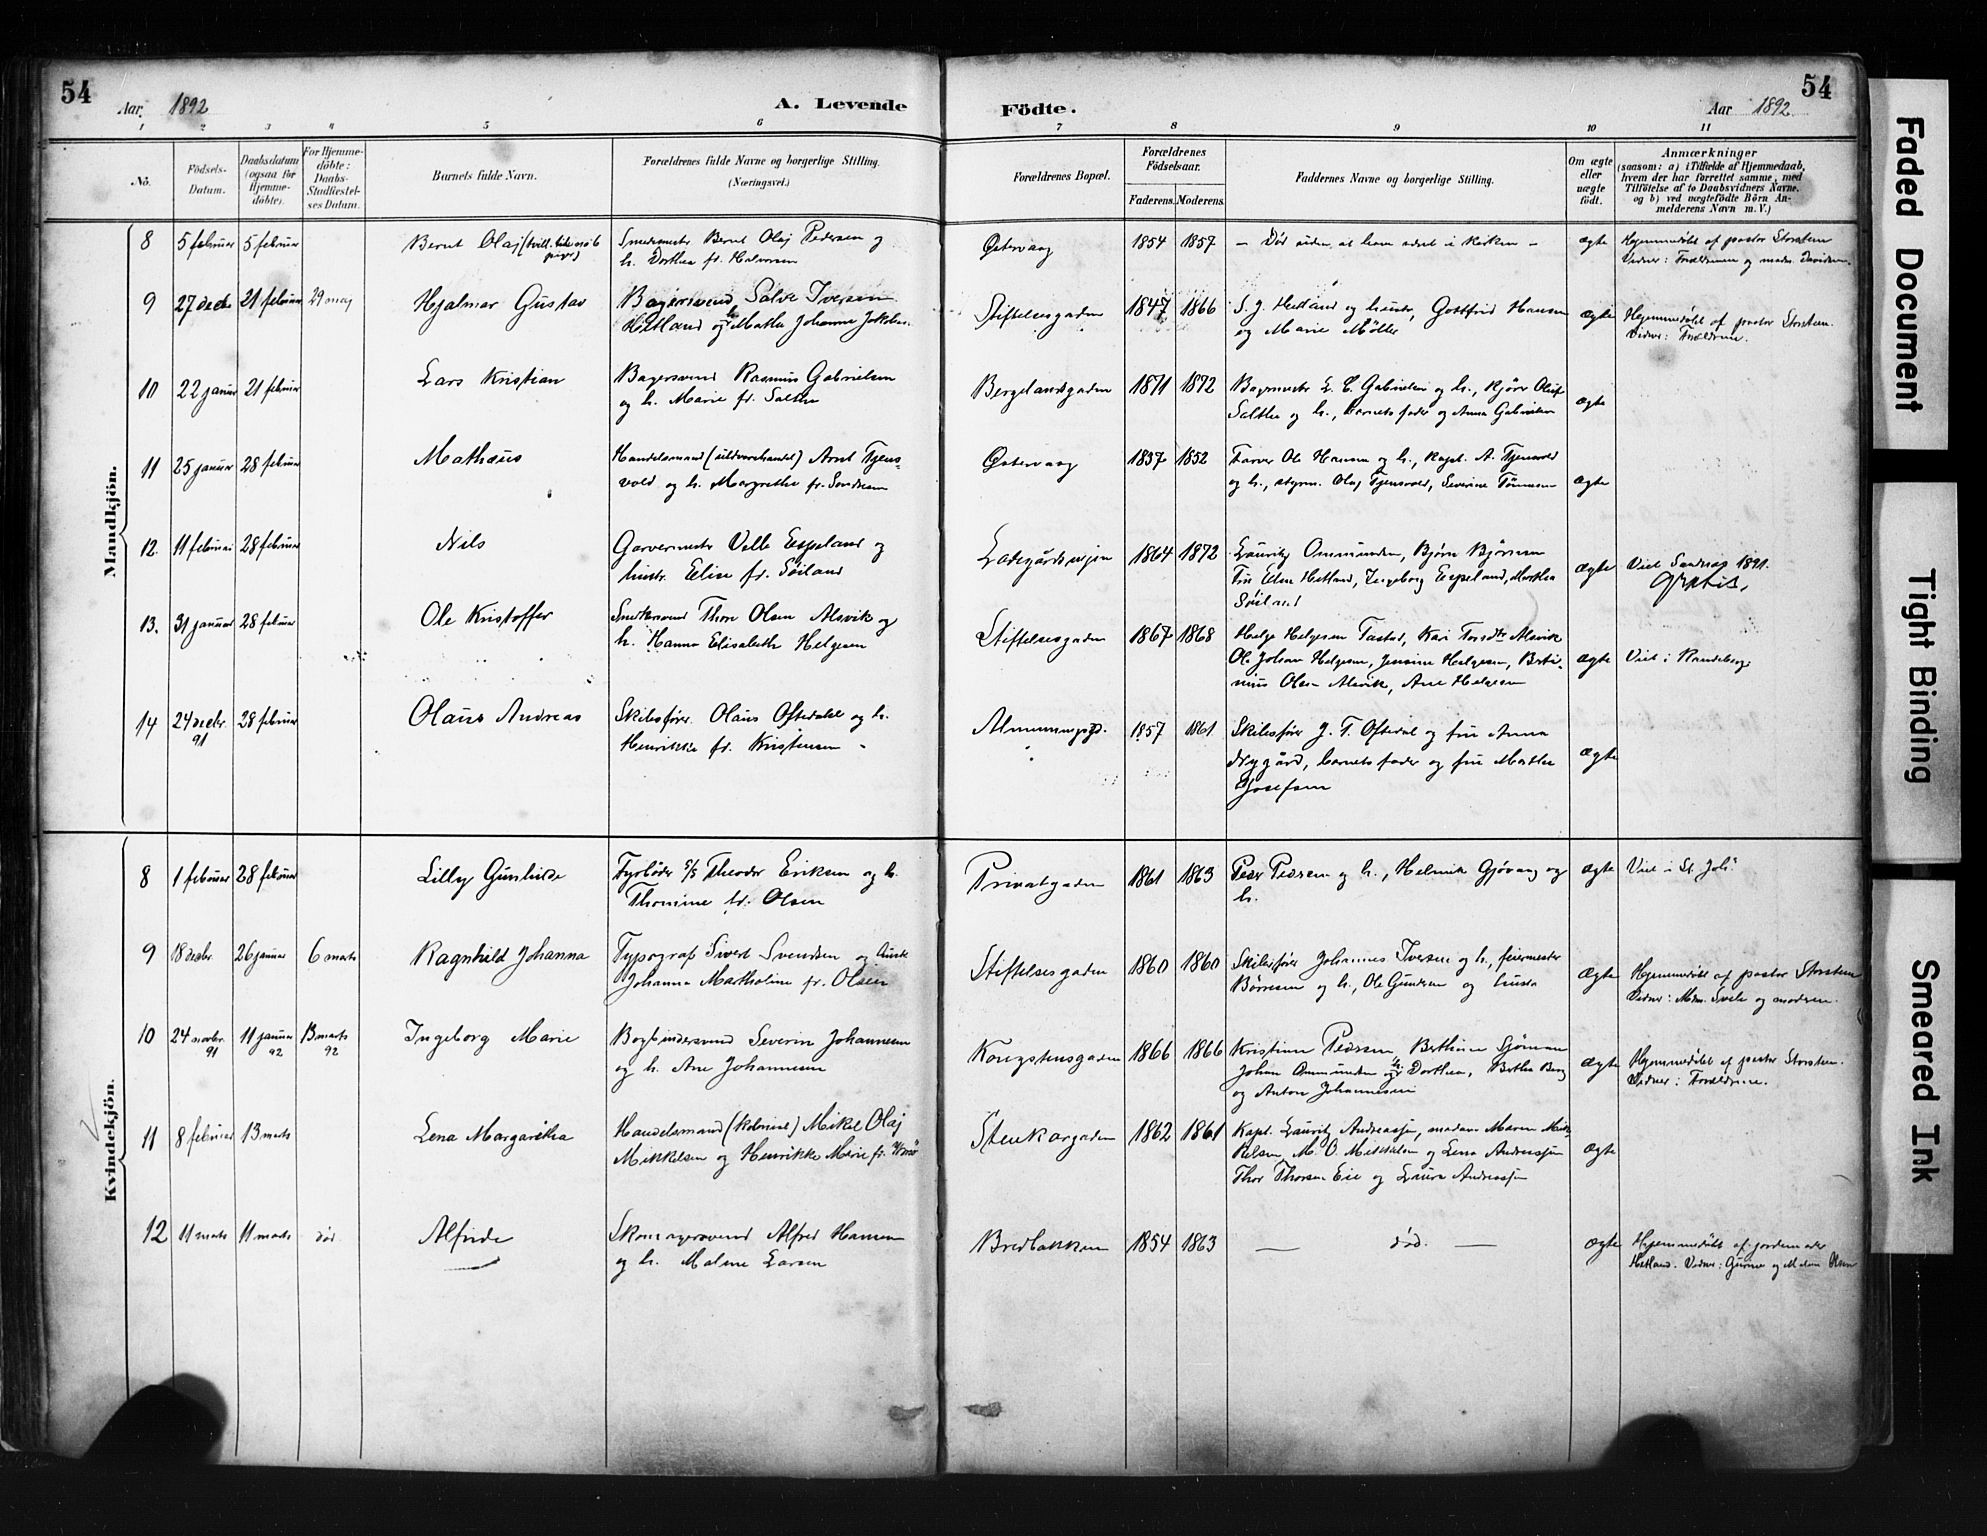 54
Aar. 1892
A. Levende
Födte.
Aar 1892.
54
1 2 3 4 5 6 7 8 9 10 11
No.
Födsels-
Datum.
Daabsdatum
(ogsaa for
Hjemme-
döbte).
For Hjemme-
döbte:
Daabs-
Stadfæstel-
ses Datum.
Barnets fulde Navn.
Forældrenes fulde Navne og borgerlige Stilling.
(Næringsvei.)
Forældrenes Bopæl.
Forældrenes
Födselsaar.
Faderens.
Moderens.
Faddernes Navne og borgerlige Stilling.
Om ægte
eller
uægte
født.
Anmærkninger
(saasom: a) i Tilfælde af Hjemmedaab,
hvem der har forrettet samme, med
Tilföielse af to Daabsvidners Navne.
og b) ved uægtefödte Börn An-
melderens Navn m. V.)
Mandkjön.
8 5 februar 5 februar Bernt Olaj
Smedmester Bernt Olaj Pedersen og
h. Dorthea fr. Halvorsen
Østervaag 1854 1857 – Død uden at have været i kirken – ægte
Hjemmedøbt af pastor Storsten
Vidner: Forældrene og madm. Davidsen.
9 27 decbr 21 februar 29 maj Hjalmar Gustav
Bagersvend Salve Iversen
Hetland og h. Mathea Johanne Jakobs.
Stiftelsesgaden 1847 1866 S. J. Hetland og hustr, Gottfried Hansen
og Marie Möller
ægte
Hjemmedøbt af pastor Storsten.
Vidner: Forældrene.
10 22 januar 21 februar Lars Kristian
Bagersvend Rasmus Gabrielsen
og h. Marie fr. Salthe
Bergelandsgaden 1871 1872 Bagermestr L. C. Gabrielsen og h., Kjöer Oluf
Salthe og h., barnets fader og Anna Gabrielsen
ægte
11 25 januar 28 februar Mathæus
Handelsmand (uldvarehandel) Arnt Tjens-
vold og h. Margrethe fr. Sandersen
Østervaag 1857 1852 Farver Ole Hansen og h., kapt. A. Tjensvold
og h., styrm. Olaj Tjensvold, Severine Tönnesen
ægte
12. 11 februar 28 februar Nils
Garvermestr Velle Espeland og
hustr. Elise fr. Söiland
Ladegårdsvejen 1864 1872 Lauritz Ommundsen, Bjørn Bjørnsen
Frk Ellen Hetland, Ingeborg Espeland, Martha
Söiland
ægte
Viet Sandnæs 1891.
gratis.
13. 31 januar 28 februar Ole Kristoffer
Snedkersvend Thore Olsen Alsvik og
h. Hanna Elisabeth Helgesen
Stiftelsesgaden 1867 1868 Helge Helgesen Tastad, Kari Torsdtr Alsvik
Ole Johan Helgesen, Jensine Helgesen, Berti-
nius Olsen Alsvik, Ane Helgesen
ægte
Viet i Randeberg.
14 24 decbr. 91 28 februar Olaus Andreas
Skibsfører Olaus Oftedahl og h.
Henrikke fr. Kristensen
Almenningsgd. 1857 1861 Skibsfører J. T. Oftedal og frk Anna
Nygård, barnets fader og frk Marthe
Josefsen
ægte
Kvindekjön.
8 1 februar 28 februar Lilly Gunhilde
Fyrbøder s/s Theodor Eriksen og h.
Thomine fr. Olsen
Privatgaden 1861 1863 Peder Pedersen og h., Helmik Gjøvaag og
h.
ægte Viet i St. Joh.
9 18 decbr. 26 januar 6 marts Ragnhild Johanna
Typograf Sivert Svendsen og hustr
Johanna Martholine fr. Olsen
Stiftelsesgaden 1860 1860 Skibsfører Johannes Iversen og h., feiermester
Börresen og h., Ole Gundersen og hustr
ægte
Hjemmedøbt af pastor Storsten
Vidner: Mdm. Svele og moderen.
10 24 novbr. 91 11 januar 92 13 marts 92 Ingeborg Marie
Bogbindersvend Severin Johannesen
og h. Ane Johannesen
Kongstensgaden 1866 1866 Kristian Pedersen, Berthine Sjöman
Johan Ommundsen og h. Dorthea, Bertha Berg
og Anton Johannesen
ægte
Hjemmedøbt af pastor Storsten.
Vidner: Forældrene.
11 8 februar 13 marts Lena Margaretha
Handelsmand (kolonial) Mikal Olaj
Mikkelsen og Henrikke Marie fr.
Stenkargaden 1862 1861 Kapt. Lauritz Andreassen, madam Maren Mik-
kelsen, M. O. Mikkelsen og Lena Andreassen
Thor Thorsen Eie og Laura Andreassen
ægte
12 11 marts 11 marts død. Alfride
Skomagersvend Alfred Hansen
og h. Malene Larsen
Bredbakken 1854 1863 – død. – ægte
Hjemmedøbt af jordemoder
Hetland. Vidner: Gurine og Malene Olsen
Faded Document
Tight Binding
Smeared Ink